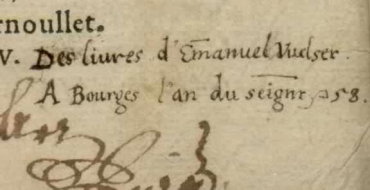 rnoullet.
V. Des livres d'Emanuel Vuelser.
A Bourges l'an du seignr, 58.